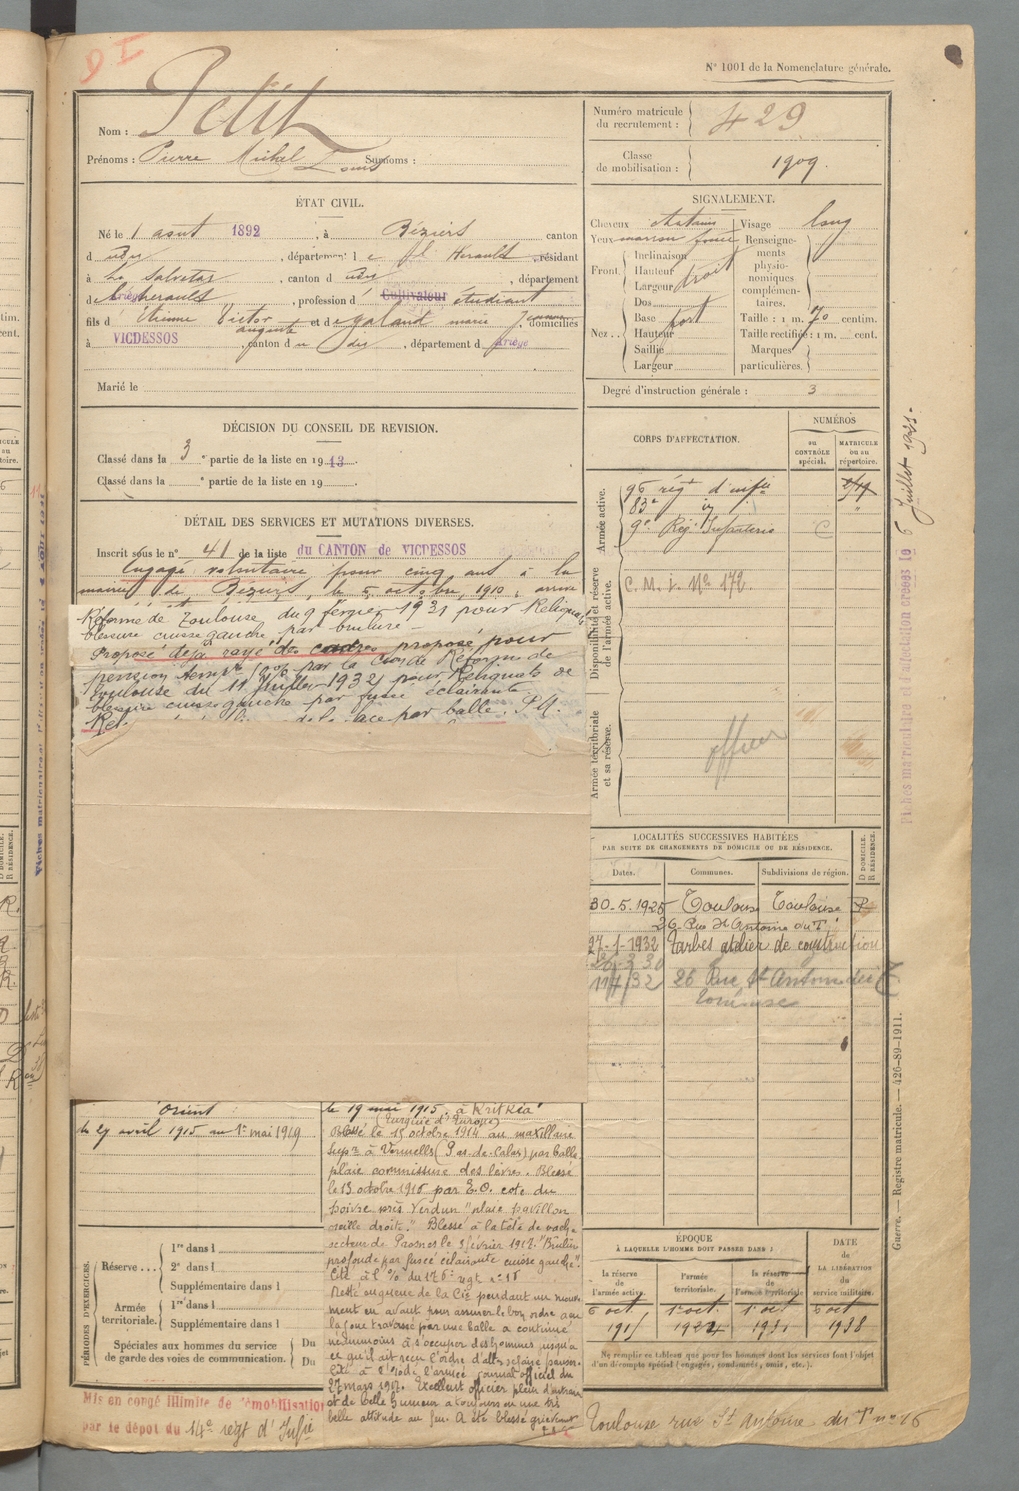 D I
N° 1001 de la Nomenclature générale.
Nom : Petit
Prénoms : Pierre Michel Louis Surnoms :
Numéro matricule du recrutement : 429
Classe de mobilisation : 1909.
ÉTAT CIVIL.
Né le 1 aout 1892, à Béziers canton
d udy, département de l'Herault, résidant
à La Salvetat, canton d udy, département
d Ariège herault, profession d Cultivateur étudiant
fils d Etienne Victor auguste et de galand marie, domiciliés
à VICDESSOS, canton d u dy, département d Ariège
Marié le
SIGNALEMENT.
Cheveux chatains Visage long
Yeux marron foncé Renseignements physionomiques complémentaires.
Front. Inclinaison
Hauteur droit
Largeur
Nez.. Dos
Base fort
Hauteur
Saillie
Largeur
Taille : 1 m. 70 centim.
Taille rectifiée : 1 m. cent.
Marques particulières.
Degré d'instruction générale : 3
DÉCISION DU CONSEIL DE REVISION.
Classé dans la 3e partie de la liste en 1913.
Classé dans la e partie de la liste en 19
DÉTAIL DES SERVICES ET MUTATIONS DIVERSES.
Inscrit sous le n° 41 de la liste du CANTON de VICDESSOS
Engagé volontaire pour cinq ans à la
mairie de Béziers, le 5 octobre, 1910, arrivé
Réforme de Toulouse du 9 février 1931 pour Reliquat
blessure cuisse gauche par brulure
Proposé déjà rayé des cadres proposé pour
pension temp. 10% par la Cion de Réforme de
Toulouse du 11 Juillet 1932 pour Reliquats de
blessure cuisse gauche par fusée éclairante.
Rel. de la face par balle. P.A.
CORPS D'AFFECTATION.
NUMÉROS
au CONTRÔLE spécial.
MATRICULE ou au répertoire.
Armée active.
96 régt d'infie
83e
9e Rég. Infanterie C
Disponibilité et réserve de l'armée active.
C. M. i. N° 172
Armée territoriale et sa réserve.
officier
LOCALITÉS SUCCESSIVES HABITÉES
PAR SUITE DE CHANGEMENTS DE DOMICILE OU DE RÉSIDENCE.
Dates. Communes. Subdivisions de région. D DOMICILE. R RÉSIDENCE.
30.5.1925 Toulouse Toulouse R
26 Rue St Antoine du T
27-1-1932 Tarbes atelier de construction
11/7/32 26 Rue St Antoine du T
Toulouse
Orient :
du 27 avril 1915 au 1er mai 1919
le 19 mai 1915, à Kritkia
(Turquie d'Europe)
Blessé le 15 octobre 1914 au maxillaire
supre à Vermelles (Pas-de-Calais) par balle
plaie commissure des lèvres. Blessé
le 13 octobre 1916 par E.O. cote du
poivre près Verdun "plaie pavillon
oreille droite." Blessé à la tête de vache
secteur de Prosnes le 5 février 1917. "Brulure
profonde par fusée éclairante cuisse gauche".
Cité à l'% du 176e regt n° 18
Resté en queue de la Cie pendant un mouve
ment en avant pour assurer le bon ordre a eu
la joue traversée par une balle a continué
néanmoins à s'occuper des hommes jusqu'à
ce qu'il ait reçu l'ordre d'aller se faire panser.
Cité à l'ordre l'armée journal officiel du
27 mars 1917. Excellent officier plein d'entrain
et de belle humeur a toujours eu une très
belle attitude au feu. A été blessé grièvement
PÉRIODES D'EXERCICES.
Réserve... 1re dans l
2e dans l
Supplémentaire dans l
Armée territoriale. 1re dans l
Supplémentaire dans l
Spéciales aux hommes du service de garde des voies de communication. Du
Du
ÉPOQUE
À LAQUELLE L'HOMME DOIT PASSER DANS :
la réserve de l'armée active.
l'armée territoriale.
la réserve de l'armée territoriale.
DATE DE LA LIBÉRATION du service militaire.
6 oct 1915
1er oct. 1924
1er oct 1931
6 oct 1938
Ne remplir ce tableau que pour les hommes dont les services font l'objet
d'un décompte spécial (engagés, condamnés, omis, etc.).
Mis en congé illimité de démobilisation
par le dépot du 14e regt d'Infie
Toulouse rue St Antoine du T n° 26
Guerre. — Registre matricule. — 426-89-1911.
Fiches matriculaire et d'affectation créées le 6 Juillet 1921.